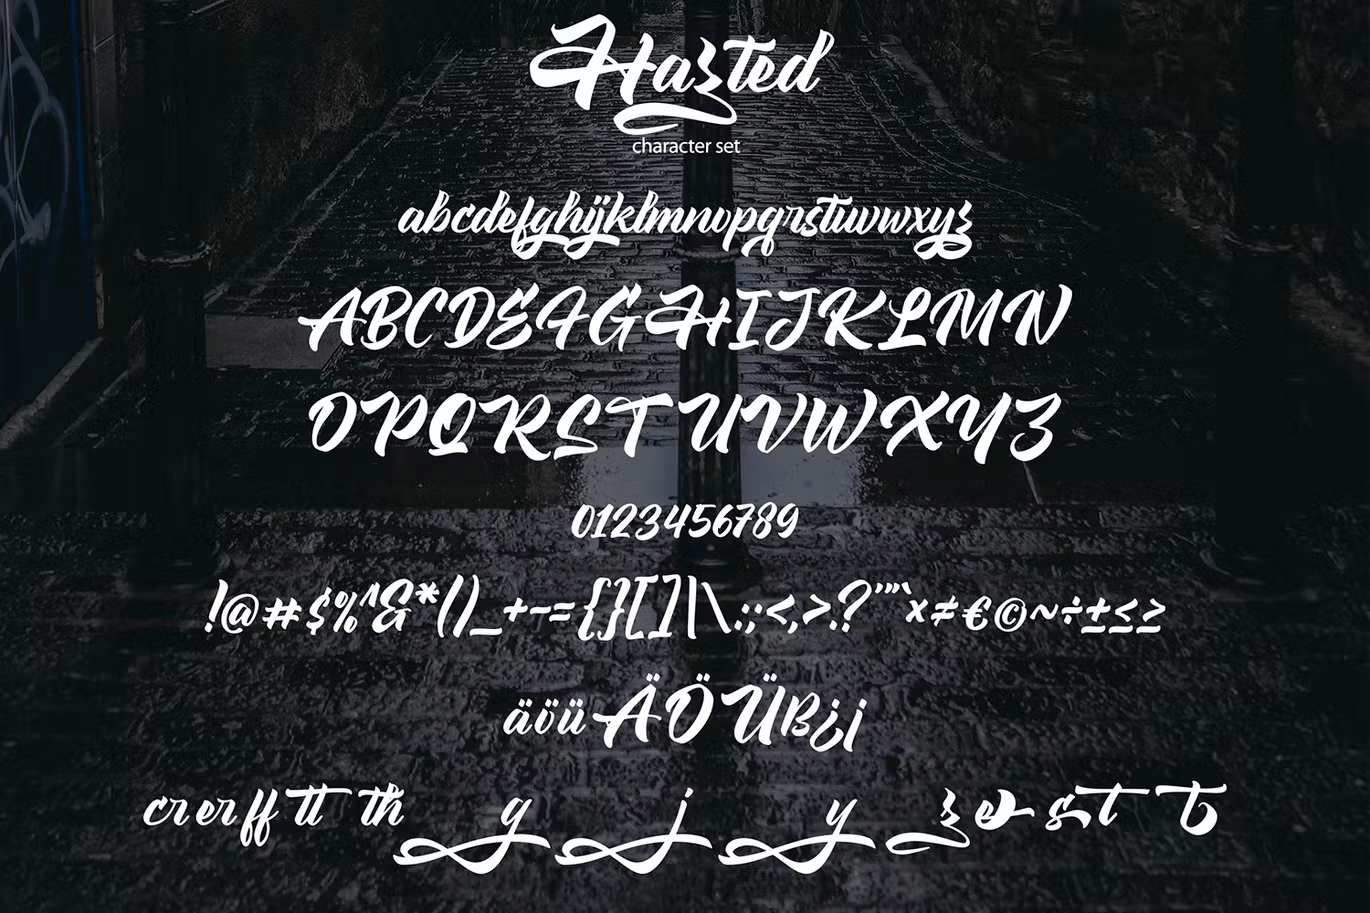 Hazted
character set
abcdefghijklmnopqrstuvwxyz
ABCDEFGHIJKLMN
OPQRSTUVWXYZ
0123456789
!@#$%^&*()_+-={}[]|\.:;<,>.?'"`×≠€©~÷±≤≥
äöüÄÖÜß¿¡
cr er r ff tt th g j y z e s t t